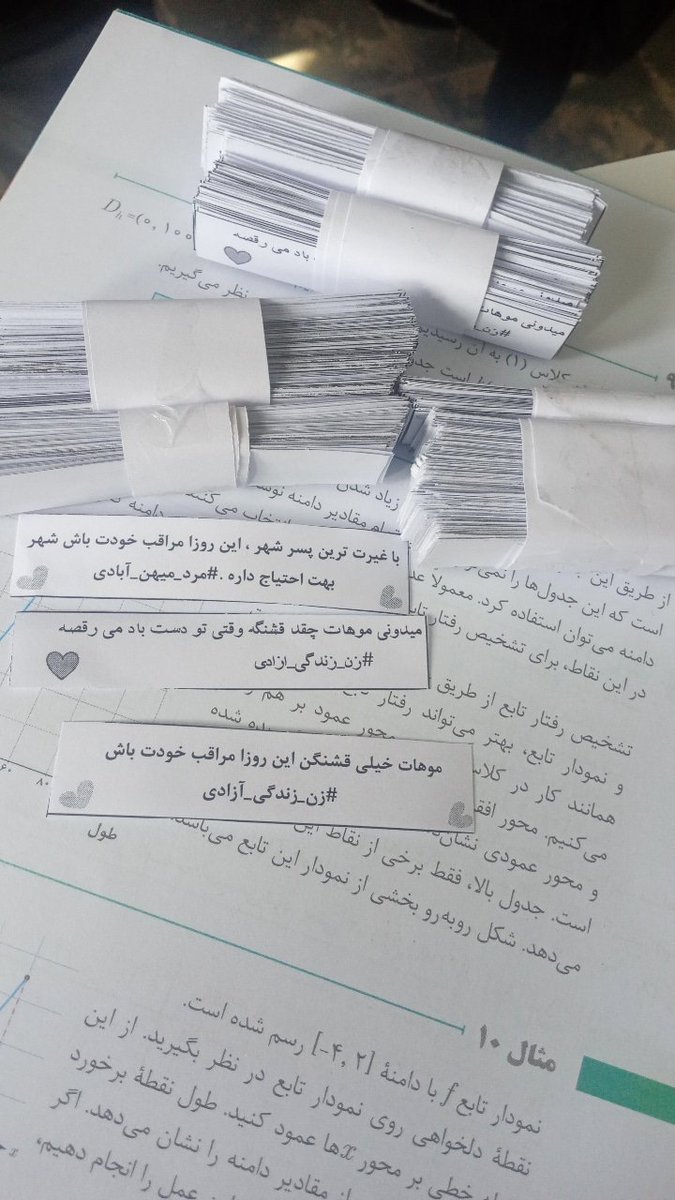 D_h = (۰, ۱۰۰
نظر می گیریم.
باد می رقصه
میدونی موهات
#زن_
کلاس (۱) به آن رسیدیم
است جدول
زیاد شدن
مقادیر دامنه
انتخاب می‌کنند
دامنه
با غیرت ترین پسر شهر ، این روزا مراقب خودت باش شهر
بهت احتیاج داره .#مرد_میهن_آبادی
میدونی موهات چقد قشنگه وقتی تو دست باد می رقصه
#زن_زندگی_ازادی
موهات خیلی قشنگن این روزا مراقب خودت باش
#زن_زندگی_آزادی
از طریق این
است که این جدول‌ها را
دامنه می‌توان استفاده کرد. معمولا
در این نقاط، برای تشخیص رفتار
تشخیص رفتار تابع از طریق
و نمودار تابع، بهتر می‌تواند رفتار تابع
همانند کار در کلاس محور عمود بر هم
می‌کنیم. محور شده
و محور عمودی
است. جدول بالا، فقط برخی از نقاط این
می‌دهد. شکل روبه‌رو بخشی از نمودار این تابع می‌باشد.
۶۰
۸۰
طول
مثال ۱۰
نمودار تابع f با دامنهٔ [-۴, ۲] رسم شده است.
نقطهٔ دلخواهی روی نمودار تابع در نظر بگیرید. از این
خطی بر محور xها عمود کنید. طول نقطهٔ برخورد
از مقادیر دامنه را نشان می‌دهد. اگر
این عمل را انجام دهیم،